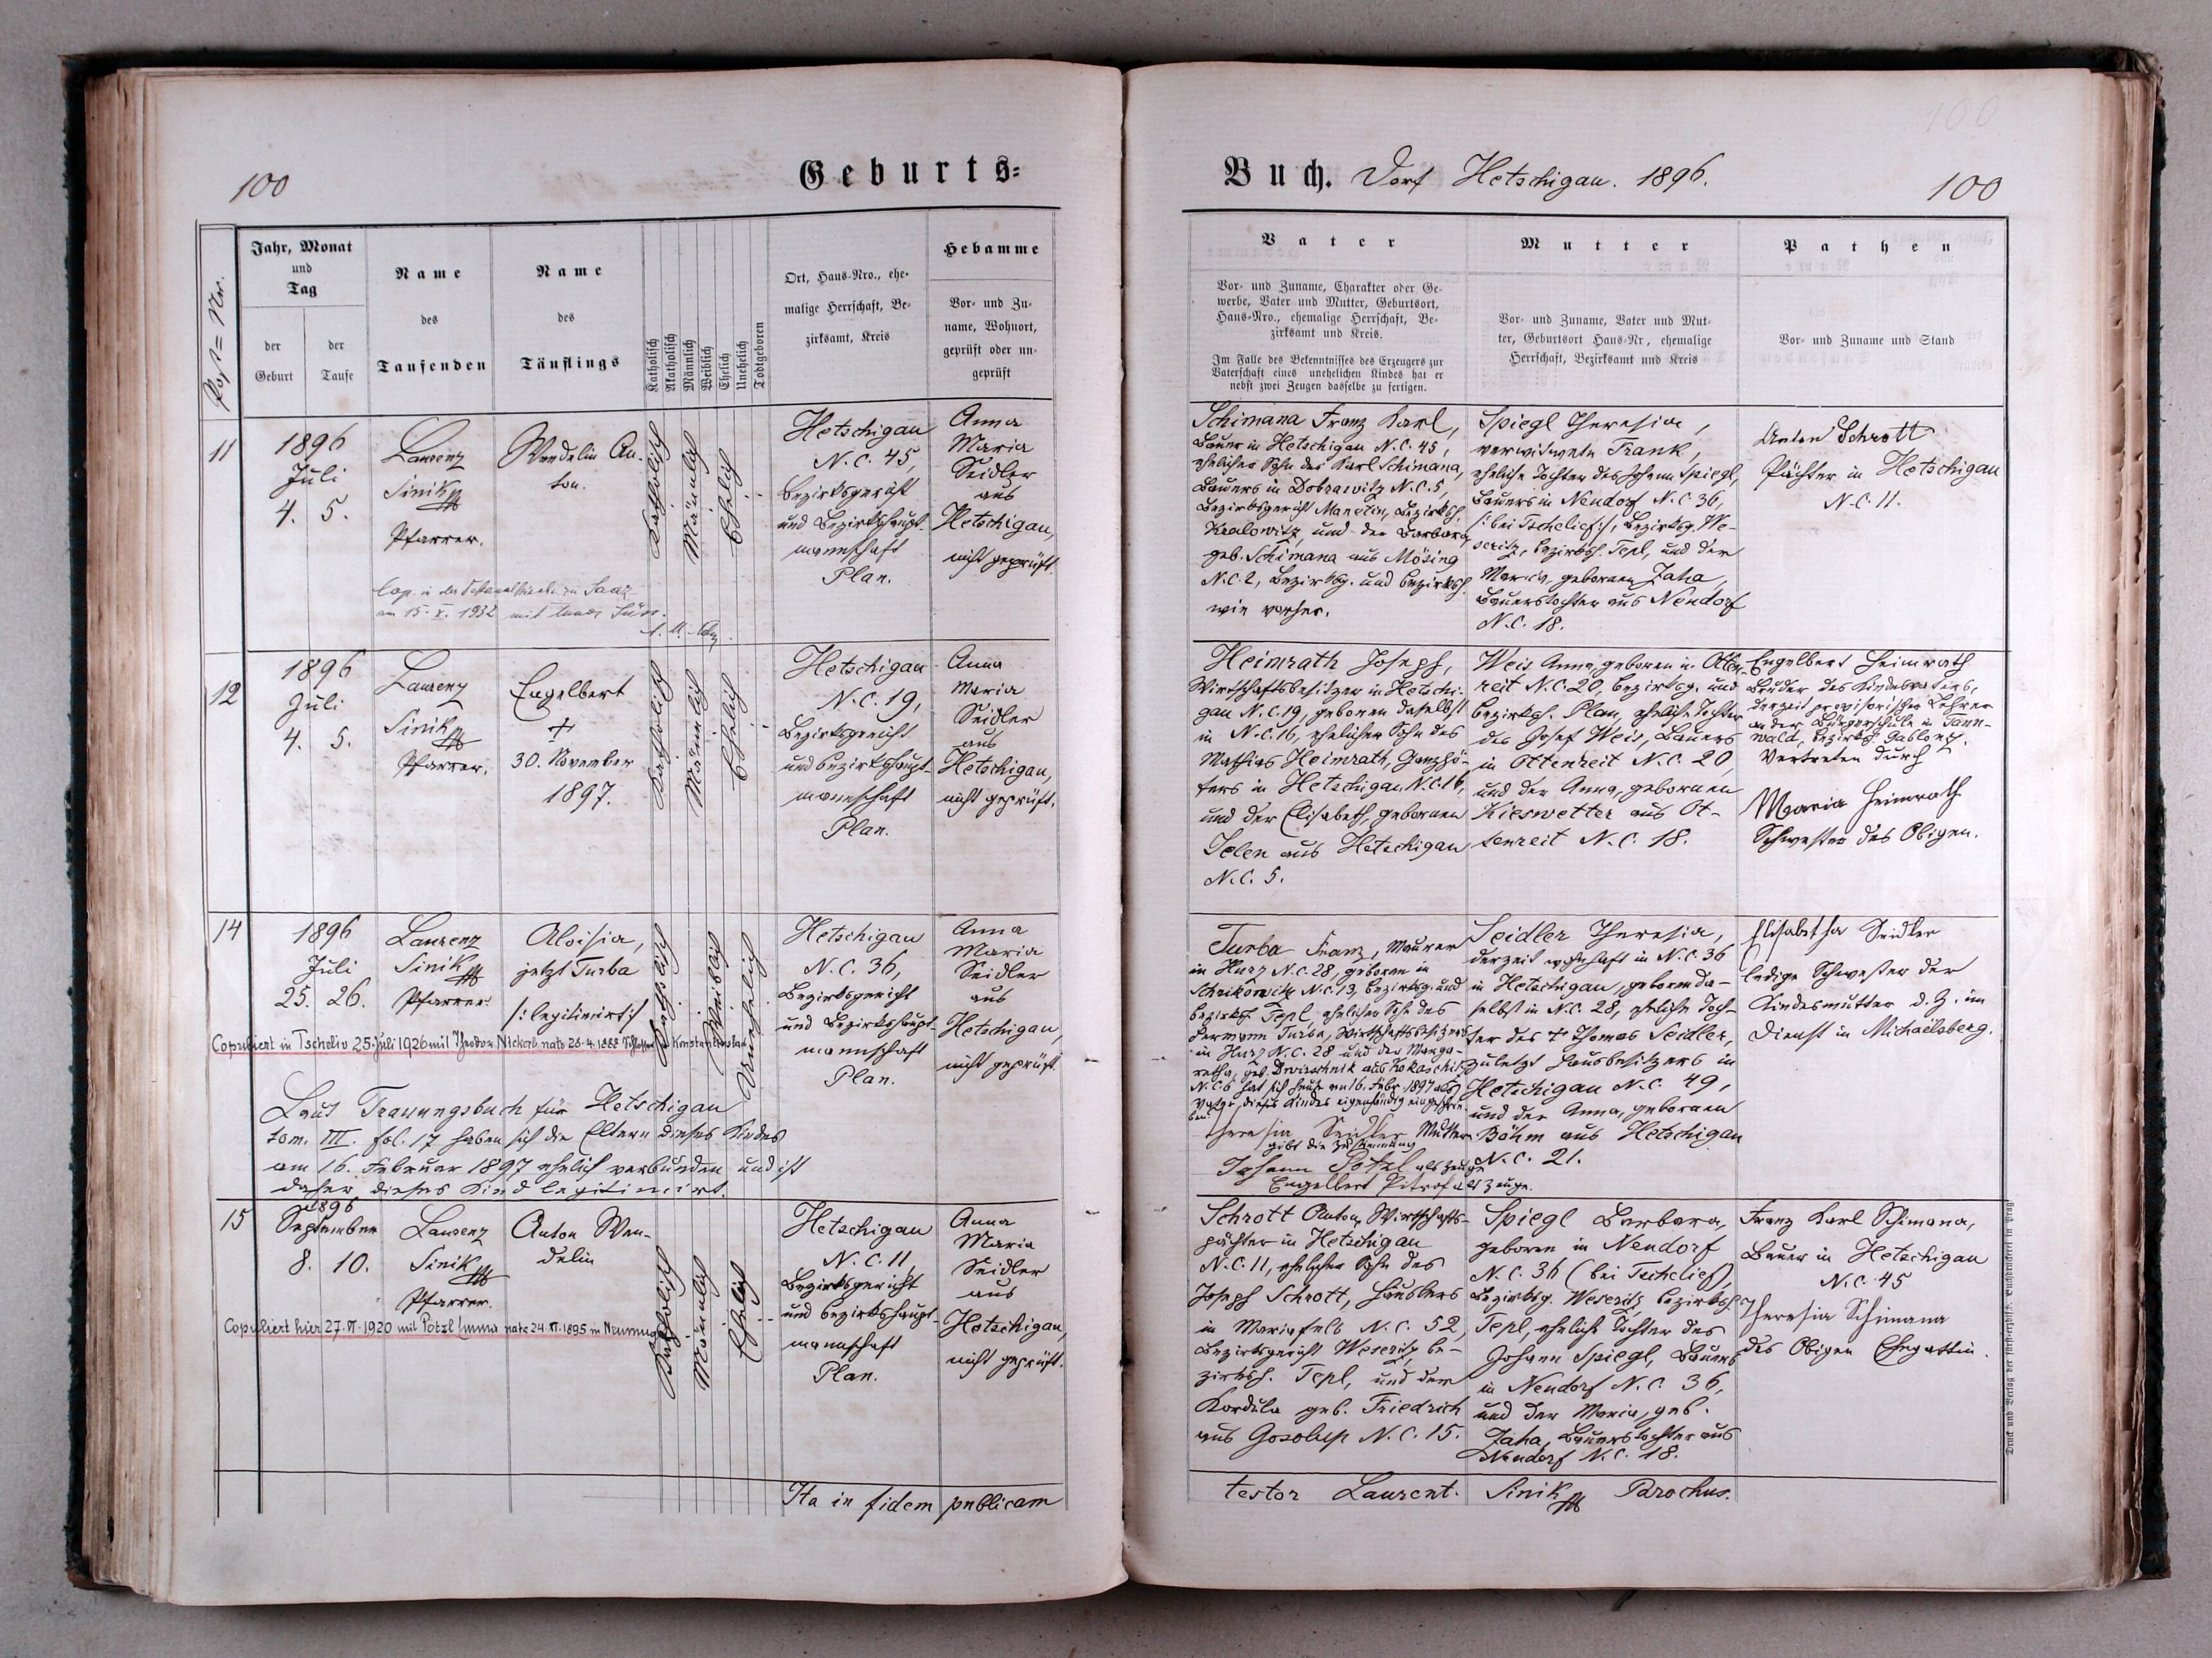 100
Geburts-
Post-Nr.
Jahr, Monat
und
Tag
der
Geburt
der
Taufe
Name
des
Taufenden
Name
des
Täuflings
Katholisch
Akatholisch
Männlich
Weiblich
Ehelich
Unehelich
Todtgeboren
Ort, Haus-Nro., ehe-
malige Herrschaft, Be-
zirksamt, Kreis
Hebamme
Vor- und Zu-
name, Wohnort,
geprüft oder un-
geprüft
11
1896
Juli
4. 5.
Laurenz
Sinik
Pfarrer.
Wendelin An-
ton.
Katholisch
Männlich
Ehelich
Hetschigau
N.C. 45,
Bezirksgericht
und Bezirkshaupt-
mannschaft
Plan.
Anna
Maria
Seidler
aus
Hetschigau,
nicht geprüft.
Cop. in der zu Saaz
am 15. X. 1932 mit
12
1896
Juli
4. 5.
Laurenz
Sinik
Pfarrer.
Engelbert
+
30. November
1897.
Katholisch
Männlich
Ehelich
Hetschigau
N.C. 19,
Bezirksgericht
und Bezirkshaupt-
mannschaft
Plan.
Anna
Maria
Seidler
aus
Hetschigau,
nicht geprüft.
14
1896
Juli
25. 26.
Laurenz
Sinik
Pfarrer.
Aloisia,
jetzt Turba
/:legitimirt:/
Katholisch
Weiblich
Unehelich
Hetschigau
N.C. 36,
Bezirksgericht
und Bezirkshaupt-
mannschaft
Plan.
Anna
Maria
Seidler
aus
Hetschigau,
nicht geprüft.
Copuliert in Tscheliv 25. Juli 1926 mil Theodor Nickerl nato 25.4.1888
Laut Trauungsbuch für Hetschigau
tom. III. fol. 17 haben sich die Eltern dieses Kindes
am 16. Februar 1897 ehelich verbunden und ist
daher dieses Kind legitimirt.
15
1896
September
8. 10.
Laurenz
Sinik
Pfarrer.
Anton Wen-
delin
Katholisch
Männlich
Ehelich
Hetschigau
N.C. 11
Bezirksgericht
und Bezirkshaupt-
mannschaft
Plan.
Anna
Maria
Seidler
aus
Hetschigau,
nicht geprüft.
Copuliert hier 27.VI.1920 mil Potzl Emma nata 24.VI.1895 in
Ita in fidem publicam
Buch. Dorf Hetschigau. 1896.
100
100
Vater
Vor- und Zuname, Charakter oder Ge-
werbe, Vater und Mutter, Geburtsort,
Haus-Nro., ehemalige Herrschaft, Be-
zirksamt und Kreis.
Im Falle des Bekenntnisses des Erzeugers zur
Vaterschaft eines unehelichen Kindes hat er
nebst zwei Zeugen dasselbe zu fertigen.
Mutter
Vor- und Zuname, Vater und Mut-
ter, Geburtsort Haus-Nr, ehemalige
Herrschaft, Bezirksamt und Kreis
Pathen
Vor- und Zuname und Stand
Schimana Franz Karl,
Bauer in Hetschigau N.C. 45,
ehelicher Sohn des Karl Schimana,
Bauers in Dobrawitz N.C. 5,
Bezirksgericht Manetin, Bezirksh.
Kralowitz, und der Barbara
geb. Schimana aus Mösing
N.C. 2, Bezirksg. und Bezirksh.
wie vorher.
Spiegl Theresia,
verwitwete Frank,
eheliche Tochter des Johann Spiegl,
Bauers in Neudorf N.C. 36,
/:bei Tschelief:/, Bezirksg. We-
seritz, Bezirksh. Tepl, und der
Maria, gebornen Zaha,
Bauerstochter aus Neudorf
N.C. 18.
Anton Schrott
Pächter in Hetschigau
N.C. 11.
Heimrath Joseph,
Wirtschaftsbesitzer in Hetschi-
gau N.C. 19, geboren daselbst
in N.C. 16, ehelicher Sohn des
Mathias Heimrath, Ganzhö-
fers in Hetschigau, N.C. 16,
und der Elisabeth, gebornen
Ielen aus Hetschigau
N.C. 5.
Weis Anna, geboren in Otten-
reit N.C. 20, Bezirksg. und
Bezirksh. Plan, eheliche Tochter
des Josef Weis, Bauers
in Ottenreit N.C. 20,
und der Anna, gebornen
Kieswetter aus Ot-
tenreit N.C. 18.
Engelbert Heimrath
Bruder des Kindesvaters,
derzeit provisorischer Lehrer
an der Bürgerschule in Tann-
wald, Bezirksh. Gablonz.
Vertreten durch
Maria Heimrath
Schwester des Obigen.
Turba Franz, Maurer
in Hurz N.C. 28, geboren in
Schrikowitz N.C. 13, Bezirksg. und
Bezirksh. Tepl, ehelicher Sohn des
Hermann Turba, Wirtschaftsbesitzers
in Hurz N.C. 28 und der Marga-
retha, geb. aus
N.C. 6 hat sich heute am 16. Febr. 1897 als
Vater dieses Kindes eigenhändig eingeschrie-
ben.
Theresia Seidler Mutter
gibt die Zustimmung
Johann Pötzl als Zeuge
Engelbert als Zeuge.
Seidler Theresia,
derzeit wohnhaft in N.C. 36
in Hetschigau, geboren da-
selbst in N.C. 28, eheliche Toch-
ter des + Thomas Seidler,
zuletzt Hausbesitzers in
Hetschigau N.C. 49,
und der Anna, gebornen
Böhm aus Hetschigau
N.C. 21.
Elisabetha Seidler
ledige Schwester der
Kindesmutter d. Z. im
Dienst in Michaelsberg.
Schrott Anton, Wirtschafts-
pächter in Hetschigau
N.C. 11, ehelicher Sohn des
Joseph Schrott, Häuslers
in Mariafels N.C. 52,
Bezirksgericht Weseritz, Be-
zirksh. Tepl, und der
Kordula geb. Friedrich
aus Gosolup N.C. 15.
Spiegl Barbara,
geboren in Neudorf
N.C. 36 (bei Tschelief),
Bezirksg. Weseritz, Bezirksh.
Tepl, eheliche Tochter des
Johann Spiegl, Bauers
in Neudorf N.C. 36,
und der Maria, geb.
Zaha, Bauerstochter aus
Neudorf N.C. 18.
Franz Karl Schimana,
Bauer in Hetschigau
N.C. 45
Theresia Schimana
des Obigen Ehegattin.
testor Laurent. Sinik Parochus.
Druck und Verlag der fürst-erzbisch. Buchdruckerei in Prag